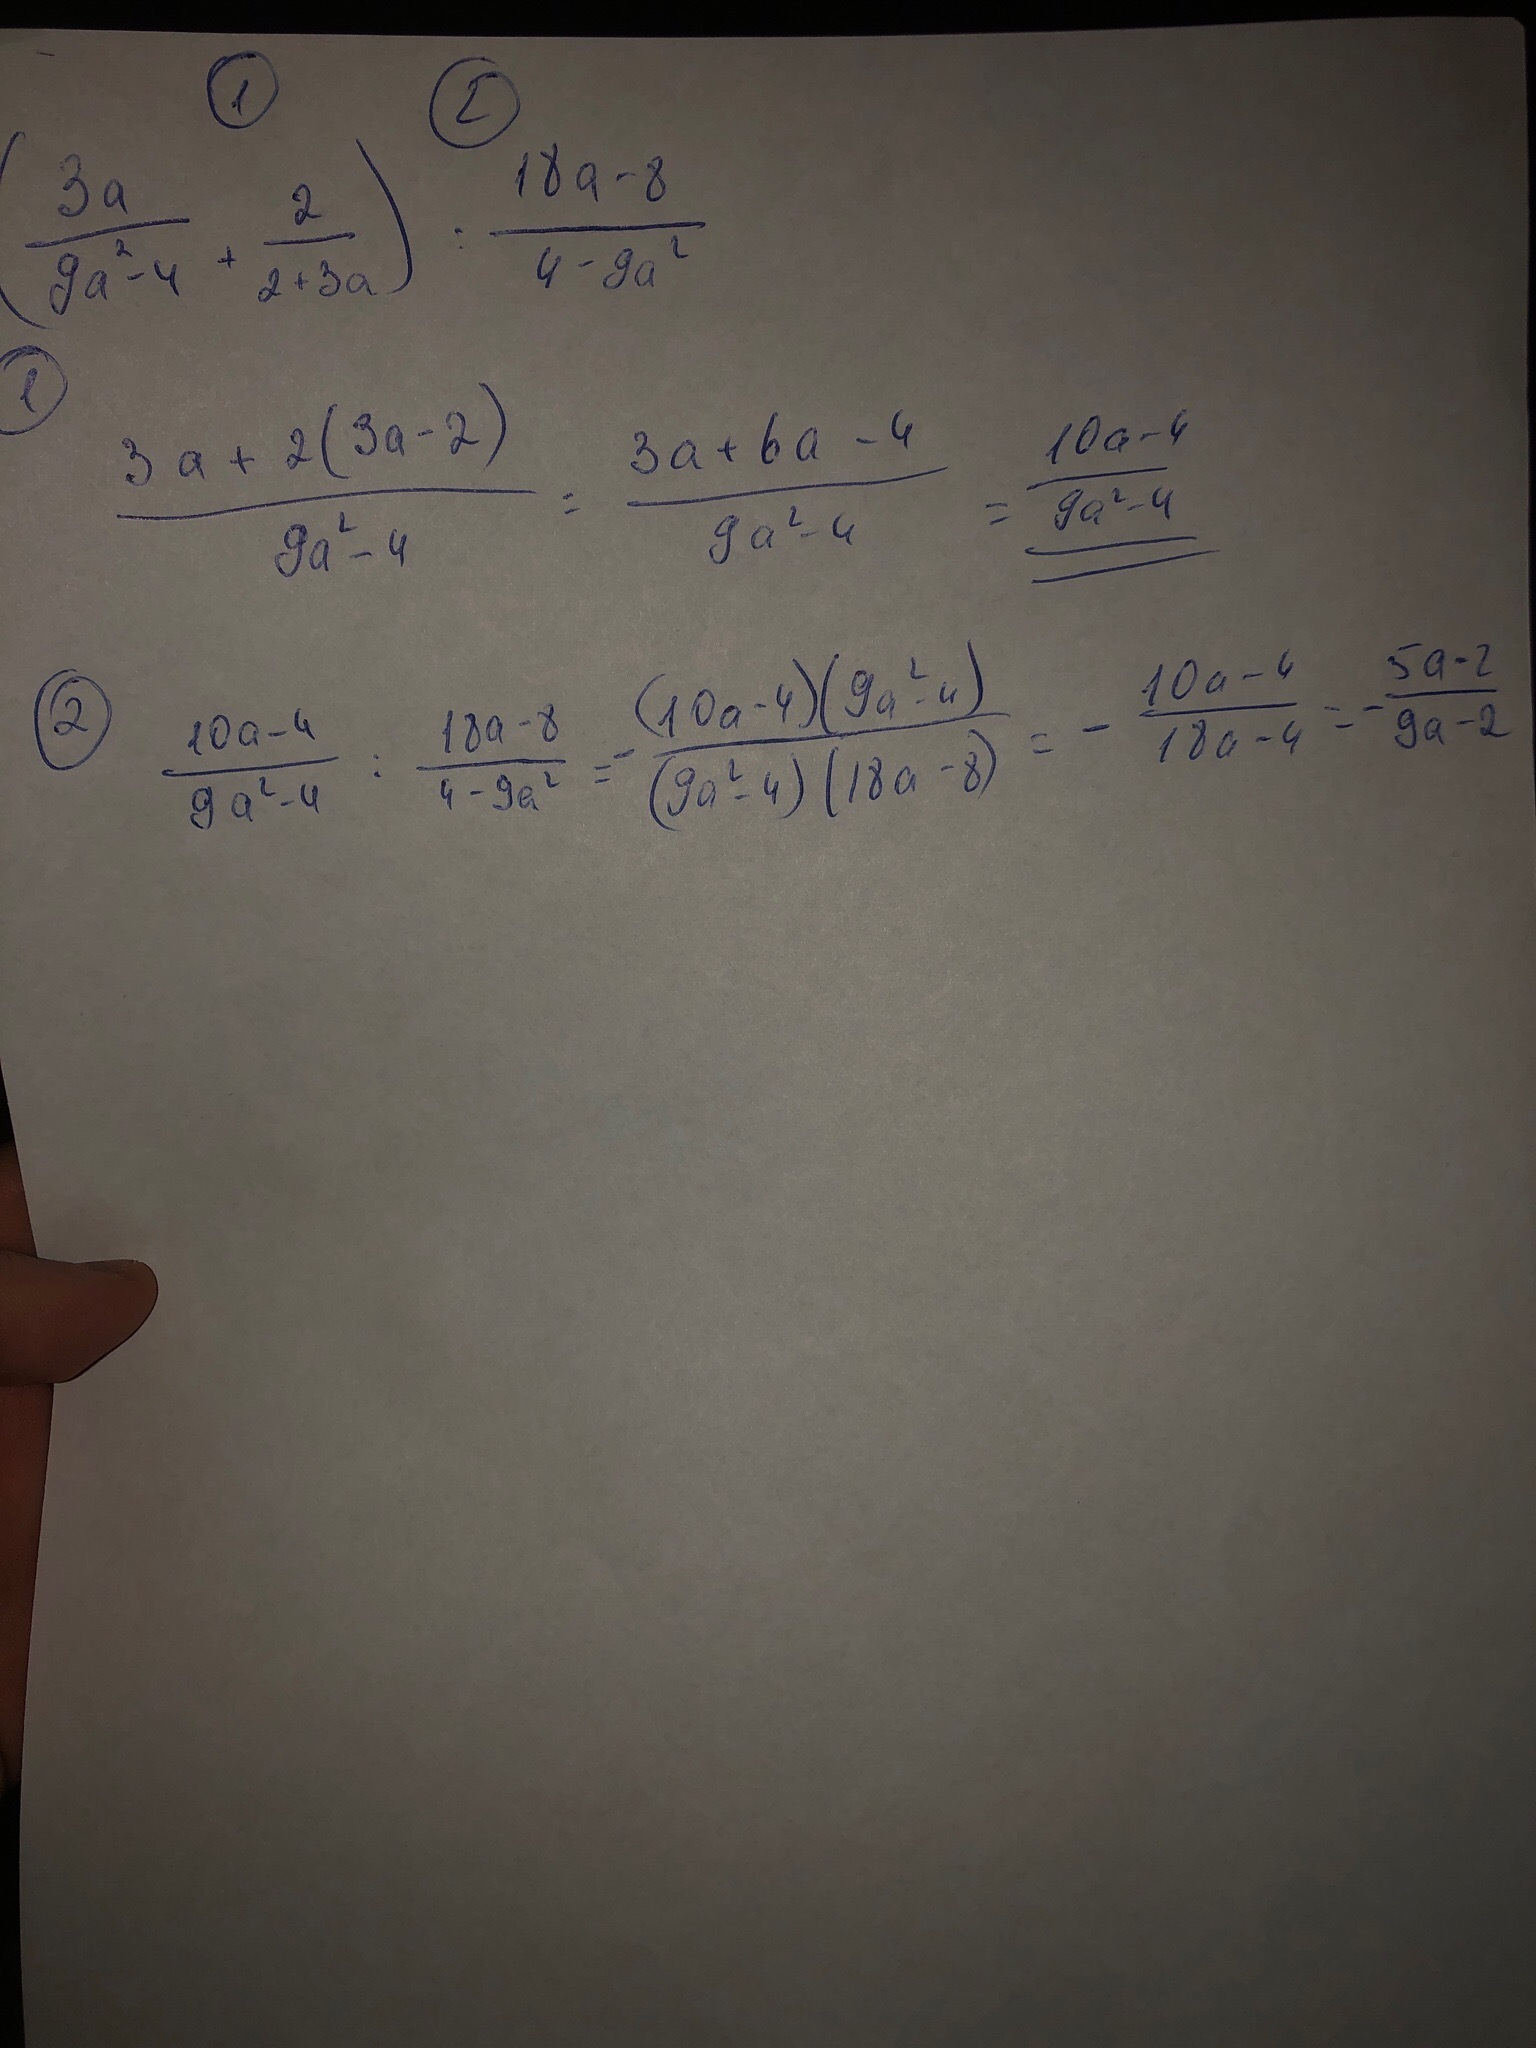 ① ②
(3a/(9a²-4) + 2/(2+3a)) : (18a-8)/(4-9a²)
①
(3a+2(3a-2))/(9a²-4) = (3a+6a-4)/(9a²-4) = (10a-4)/(9a²-4)
② (10a-4)/(9a²-4) : (18a-8)/(4-9a²) = -((10a-4)(9a²-4))/((9a²-4)(18a-8)) = -(10a-4)/(18a-4) = -(5a-2)/(9a-2)